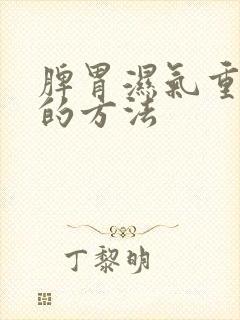 脾胃濕氣重
的方法
丁黎明